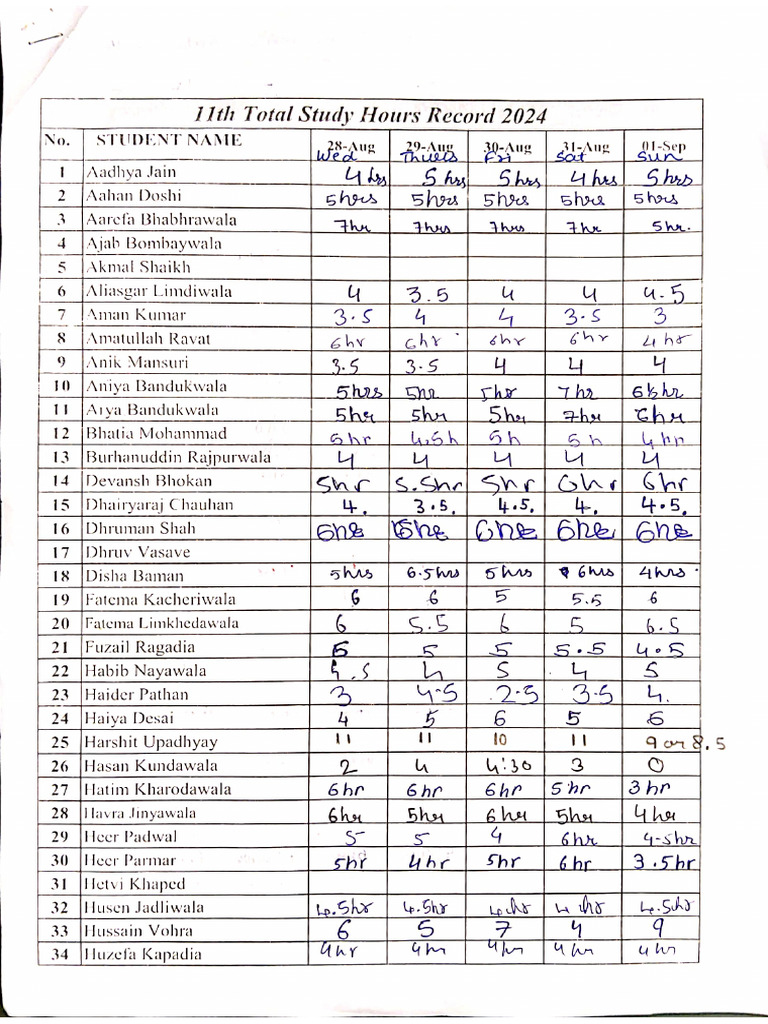 11th Total Study Hours Record 2024
No. STUDENT NAME 28-Aug 29-Aug 30-Aug 31-Aug 01-Sep
Wed Thurs Fri Sat Sun
1 Aadhya Jain 4 hrs 5 hrs 5 hrs 4 hrs 5 hrs
2 Aahan Doshi 5hrs 5hrs 5hrs 5hrs 5hrs
3 Aarefa Bhabhrawala 7hr 7hrs 7hrs 7hr 5hr.
4 Ajab Bombaywala
5 Akmal Shaikh
6 Aliasgar Limdiwala 4 3.5 4 4 4.5
7 Aman Kumar 3.5 4 4 3.5 3
8 Amatullah Ravat 6hr 6hr 6hr 6hr 4hr
9 Anik Mansuri 3.5 3.5 4 4 4
10 Aniya Bandukwala 5hrs 5hr 5hr 7hr 6½hr
11 Arya Bandukwala 5hr 5hr 5hr 7hr 6hr
12 Bhatia Mohammad 5hr 4.5h 5h 5h 4hr
13 Burhanuddin Rajpurwala 4 4 4 4 4
14 Devansh Bhokan 5hr 5.5hr 5hr 6hr 6hr
15 Dhairyaraj Chauhan 4. 3.5. 4.5. 4. 4.5.
16 Dhruman Shah 6hr 6hr 6hr 6hr
17 Dhruv Vasave
18 Disha Baman 5hrs 6.5hrs 5hrs 6hrs 4hrs
19 Fatema Kacheriwala 6 6 5 5.5 6
20 Fatema Limkhedawala 6 5.5 6 5 6.5
21 Fuzail Ragadia 5 5 5 5.5 4.5
22 Habib Nayawala 4.5 4 5 4 5
23 Haider Pathan 3 4.5 2.5 3.5 4.
24 Haiya Desai 4 5 6 5 6
25 Harshit Upadhyay 11 11 10 11 9 or 8.5
26 Hasan Kundawala 2 4 4:30 3 0
27 Hatim Kharodawala 6hr 6hr 6hr 5hr 3hr
28 Havra Jinyawala 6hr 5hr 6hr 5hr 4hr
29 Heer Padwal 5 5 4 6hr 4-5hr
30 Heer Parmar 5hr 4hr 5hr 6hr 3.5hr
31 Hetvi Khaped
32 Husen Jadliwala 4.5hr 4.5hr 4hr 4hr 4.5hr
33 Hussain Vohra 6 5 7 4 9
34 Huzefa Kapadia 4hr 4hr 4hr 4hr 4hr